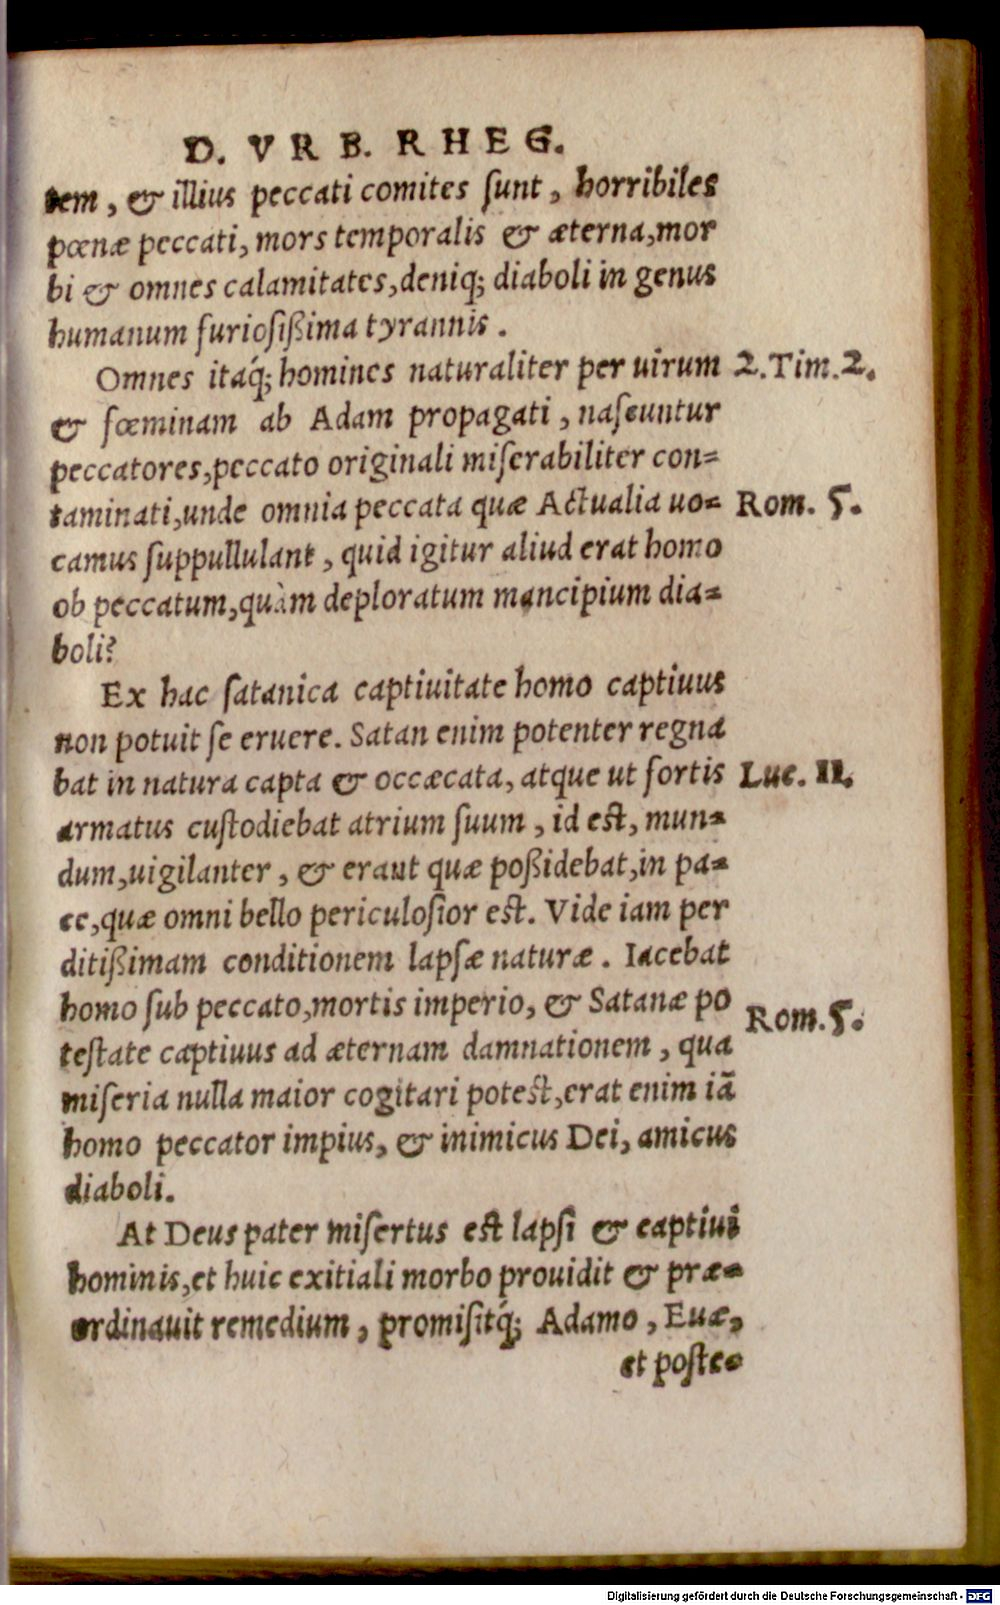 D. VRB. RHEG.
tem, & illius peccati comites sunt, horribiles
pœnæ peccati, mors temporalis & æterna, mor
bi & omnes calamitates, deniq; diaboli in genus
humanum furiosißima tyrannis.
Omnes itáq; homines naturaliter per uirum 2. Tim. 2.
& fœminam ab Adam propagati, nascuntur
peccatores, peccato originali miserabiliter con=
taminati, unde omnia peccata quæ Actualia uo= Rom. 5.
camus suppullulant, quid igitur aliud erat homo
ob peccatum, quàm deploratum mancipium dia=
boli?
Ex hac satanica captiuitate homo captiuus
non potuit se eruere. Satan enim potenter regna
bat in natura capta & occæcata, atque ut fortis Luc. II.
armatus custodiebat atrium suum, id est, mun=
dum, uigilanter, & eraut quæ poßidebat, in pa=
ce, quæ omni bello periculosior est. Vide iam per
ditißimam conditionem lapsæ naturæ. Iacebat
homo sub peccato, mortis imperio, & Satanæ po Rom. 5.
testate captiuus ad æternam damnationem, qua
miseria nulla maior cogitari potest, erat enim iã
homo peccator impius, & inimicus Dei, amicus
diaboli.
At Deus pater misertus est lapsi & captiui
hominis, et huic exitiali morbo prouidit & præ=
ordinauit remedium, promisitq́; Adamo, Euæ,
et poste=
Digitalisierung gefördert durch die Deutsche Forschungsgemeinschaft - DFG